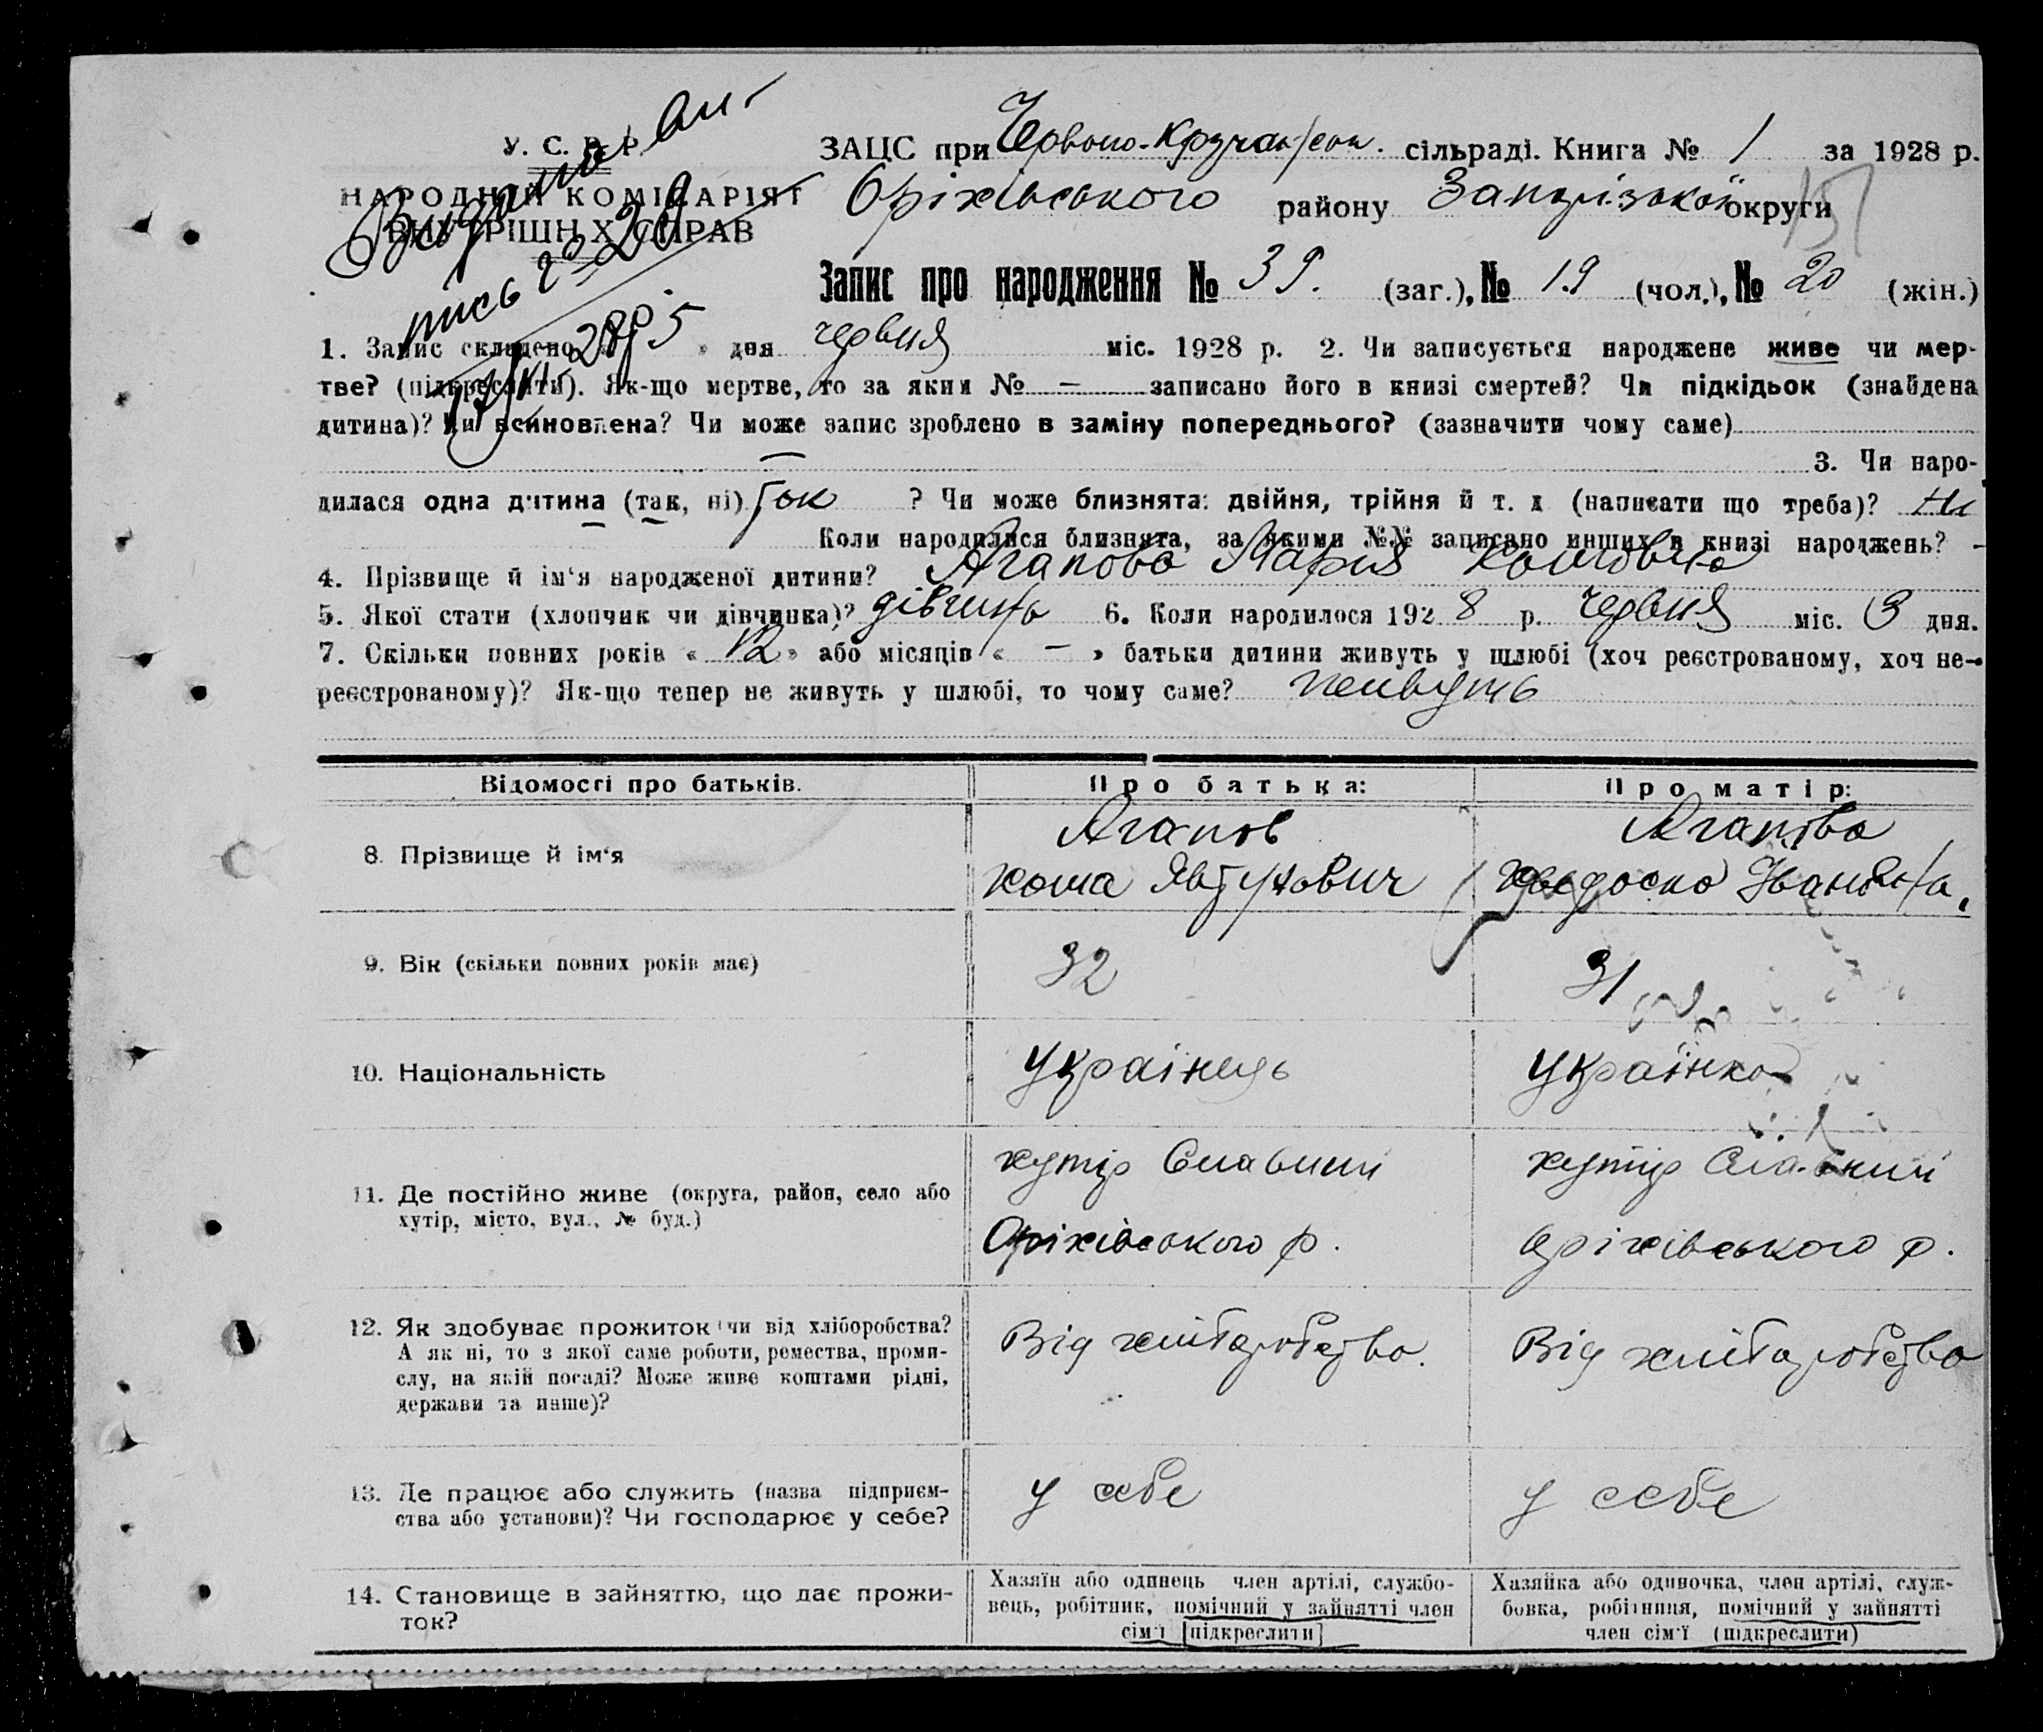 У. С. Р. Р.
НАРОДНИЙ КОМІСАРІЯТ
ВНУТРІШНІХ СПРАВ
ЗАЦС при Червоно- сільраді. Книга № 1 за 1928 р.
Оріхівського району Запорізької округи
Запис про народження № 39. (заг.), № 19 (чол.), № 20 (жін.)
1. Запис складено « 5 » дня червня міс. 1928 р. 2. Чи записується народжене живе чи мер-
тве? (підкреслити). Як-що мертве, то за яким № — записано його в книзі смертей? Чи підкідьок (знайдена
дитина)? Чи всиновлена? Чи може запис зроблено в заміну попереднього? (зазначити чому саме)
— 3. Чи наро-
дилася одна дитина (так, ні) так ? Чи може близнята: двійня, трійня й т. д (написати що треба)? Ні
Коли народилися близнята, за якими №№ записано инших в книзі народжень? -
4. Прізвище й ім‘я народженої дитини? Агапова Марія
5. Якої стати (хлопчик чи дівчинка)? дівчина 6. Коли народилося 192 8 р. Червня міс. 3 дня.
7. Скільки повних років « 12 » або місяців « — » батьки дитини живуть у шлюбі (хоч реєстрованому, хоч не-
реєстрованому)? Як-що тепер не живуть у шлюбі, то чому саме? живуть
Відомості про батьків. Про батька: Про матір:
8. Прізвище й ім‘я
Агапов
Агапова
Івановна.
9. Вік (скільки повних років має) 32 31
10. Національність украінець украінка
11. Де постійно живе (округа, район, село або
хутір, місто, вул., № буд.)
хутір
Оріхівського р.
хутір
Оріхівського р.
12. Як здобуває прожиток (чи від хліборобства?
А як ні, то з якої саме роботи, ремества, проми-
слу, на якій посаді? Може живе коштами рідні,
держави та инше)?
Від хліборобства.
Від хліборобства
13. Де працює або служить (назва підприєм-
ства або установи)? Чи господарює у себе?
у себе
у себе
14. Становище в зайняттю, що дає прожи-
ток?
Хазяїн або одинець член артілі, службо-
вець, робітник, помічний у зайнятті член
сім‘ї [підкреслити]
Хазяйка або одиночка, член артілі, служ-
бовка, робітниця, помічний у зайнятті
член сім‘ї (підкреслити)